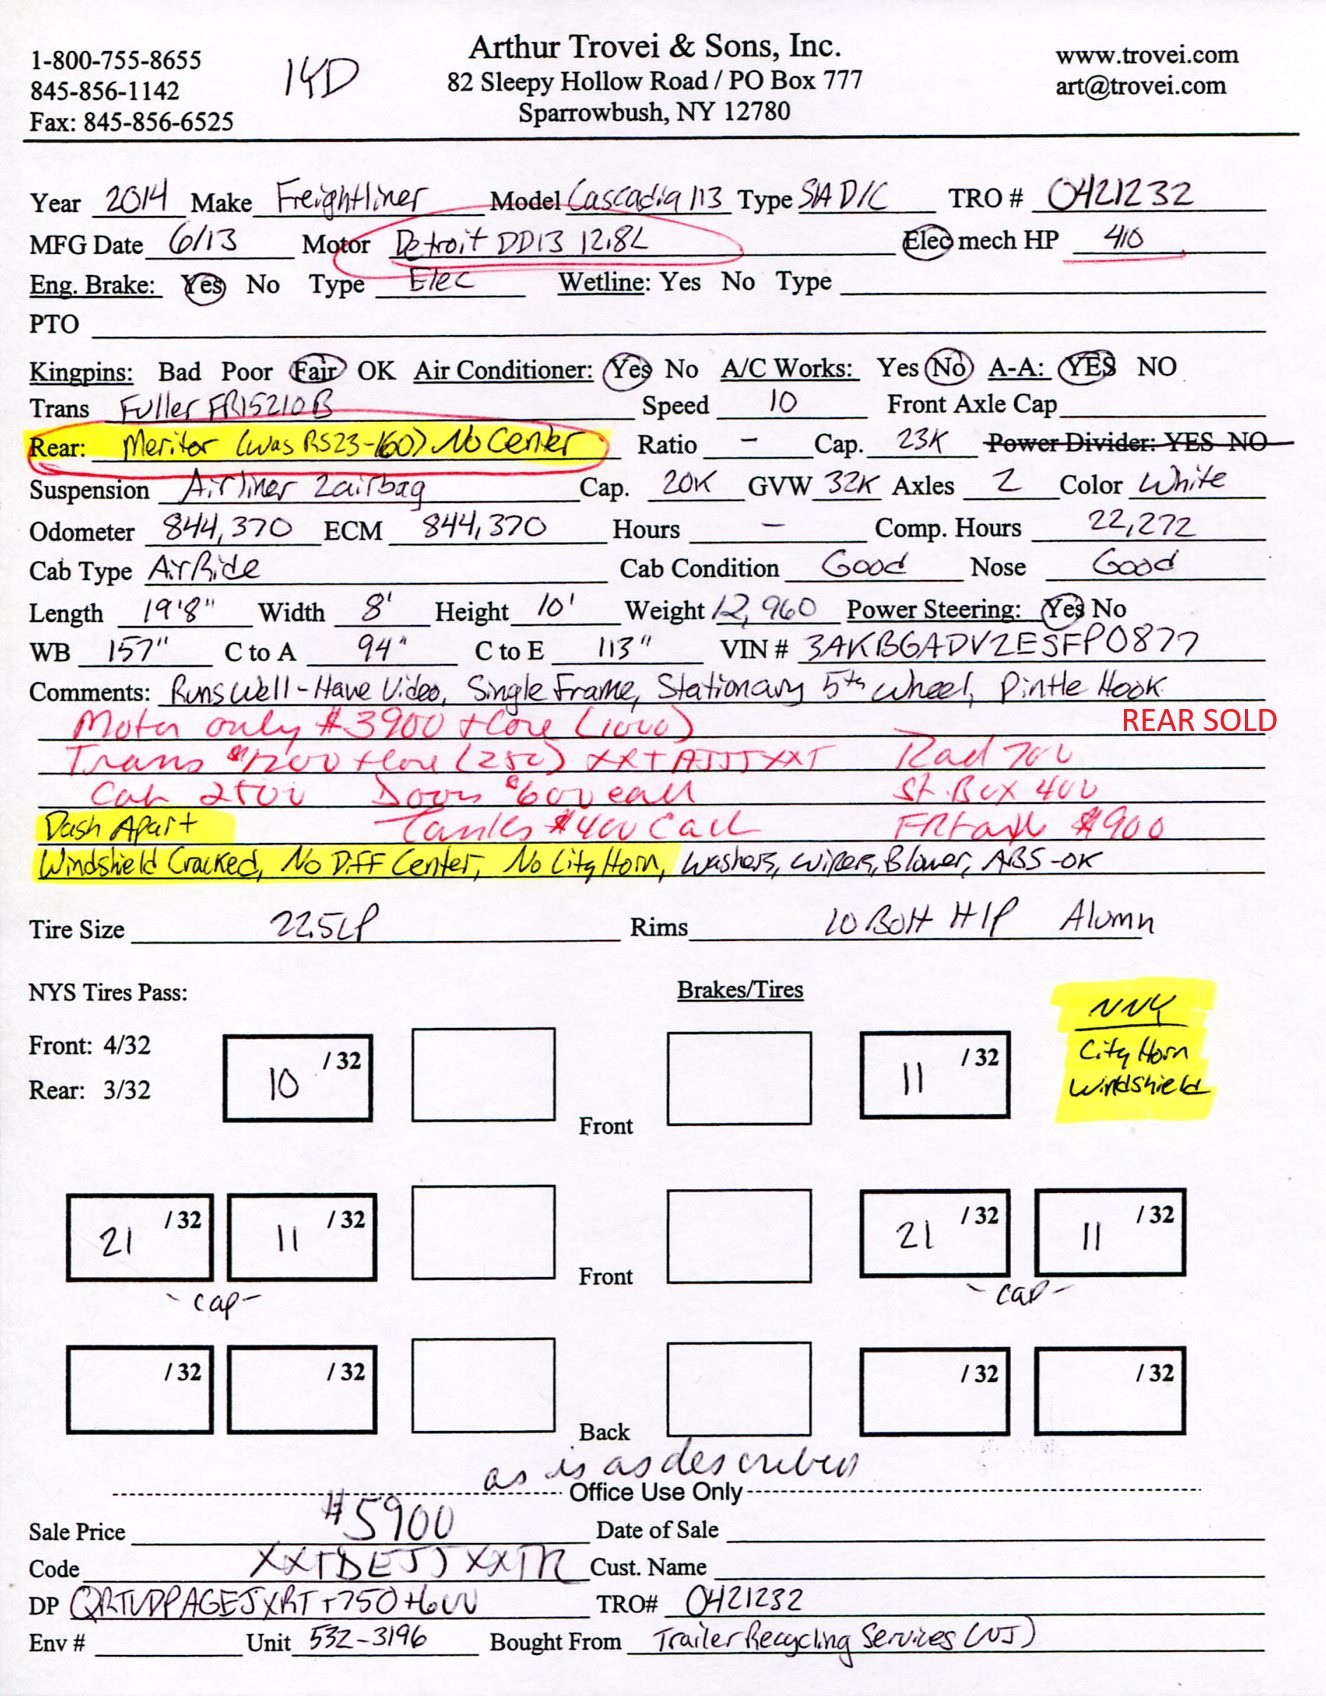 1-800-755-8655
845-856-1142
Fax: 845-856-6525
14D
Arthur Trovei & Sons, Inc.
82 Sleepy Hollow Road / PO Box 777
Sparrowbush, NY 12780
www.trovei.com
art@trovei.com
Year 2014 Make Freightliner Model Cascadia 113 Type S/A D/C TRO # 0421232
MFG Date 6/13 Motor Detroit DD13 12.8L Elec mech HP 410
Eng. Brake: Yes No Type Elec Wetline: Yes No Type
PTO
Kingpins: Bad Poor Fair OK Air Conditioner: Yes No A/C Works: Yes No A-A: YES NO
Trans Fuller FR15210B Speed 10 Front Axle Cap
Rear: Meritor (was RS23-160) No Center Ratio - Cap. 23K Power Divider: YES NO
Suspension Airliner 2airbag Cap. 20K GVW 32K Axles 2 Color White
Odometer 844,370 ECM 844,370 Hours - Comp. Hours 22,272
Cab Type AirRide Cab Condition Good Nose Good
Length 19'8" Width 8' Height 10' Weight 12,960 Power Steering: Yes No
WB 157" C to A 94" C to E 113" VIN # 3AKBGADV2ESFP0877
Comments: Runs Well - Have Video, Single Frame, Stationary 5th Wheel, Pintle Hook
Motor only $3900 + Core (1000) REAR SOLD
Trans $1200 + Core (250) XXTAJJTXXT Rad 700
Cab 2500 Doors $600 each St. Box 400
Dash Apart Tanks $400 Each FR Axle $900
Windshield Cracked, No Diff Center, No City Horn, Washers, Wipers, Blower, ABS-OK
Tire Size 22.5LP Rims 10 Bolt H/P Alumn
NYS Tires Pass: Brakes/Tires
Front: 4/32
Rear: 3/32
NNY
City Horn
Windshield
10 /32 11 /32
Front
21 /32 11 /32 21 /32 11 /32
Front
-cap- -cap-
/32 /32 /32 /32
Back
as is as described
Office Use Only
Sale Price $5900 Date of Sale
Code XXTDEJJXXTR Cust. Name
DP QRTVDPAGEJXRT+750+600 TRO# 0421232
Env # Unit 532-3196 Bought From Trailer Recycling Services (NJ)